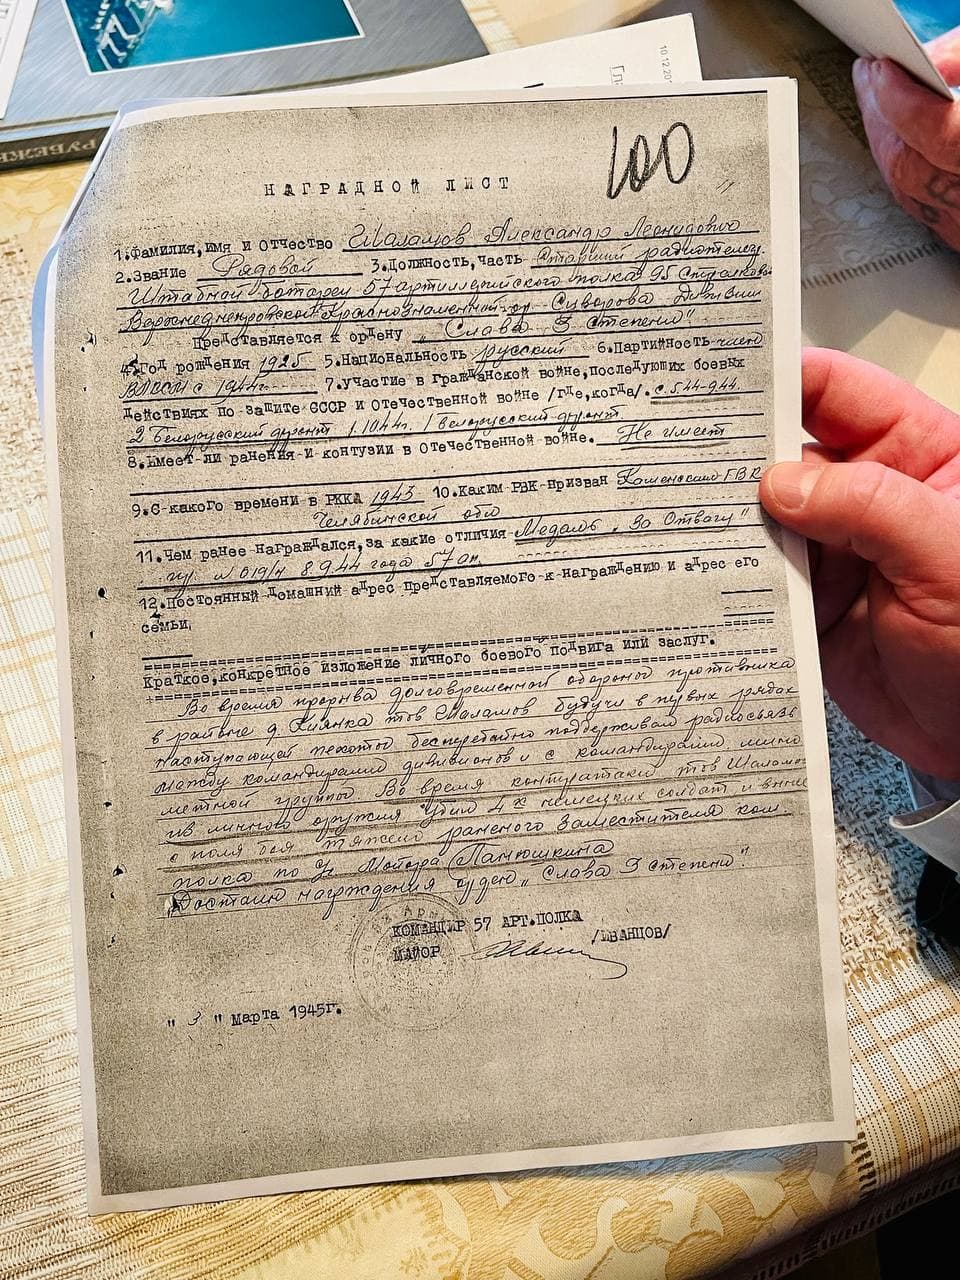 РУБЕЖ
10.12.20
100
НАГРАДНОЙ ЛИСТ
1.Фамилия,имя и отчество Шаламов Александр Леонидович
2.Звание Рядовой 3.Должность,часть Старший радиотелег.
Штабной батареи 57 артиллерийского полка 95 Стрелковой
Верхнеднепровской Краснознаменной ор. Суворова Дивизии
Представляется к ордену „Слава 3 Степени"
4.Год рождения 1925 5.Национальность русский 6.Партийность член
ВЛКСМ с 1944г. 7.Участие в Гражданской войне,последующих боевых
действиях по защите СССР и Отечественной войне /где,когда/. с 5.44-9.44.
2 Белорусский фронт 1.10.44г. 1 Белорусский фронт.
8.Имеет-ли ранения-и контузии в Отечественной войне. Не имеет
9.С-какого времени в РККА 1943 10.Каким РВК-призван Каменским ГВК
Челябинской обл
11.Чем ранее награждался,за какие отличия Медаль „За Отвагу"
пр. №019/н 8.9.44 года 57 ап.
12.Постоянный домашний адрес представляемого-к-награждению и адрес его
семьи.
Краткое,конкретное изложение личного боевого подвига или заслуг.
Во время прорыва долговременной обороной противника
в районе д. Киянка тов Шаламов будучи в первых рядах
наступающей пехоты бесперебойно поддерживал радиосвязь
между командирами дивизионов и с командирами мино
метной группы. Во время контратаки тов Шаламов
из личного оружия убил 4х немецких солдат и вынес
с поля боя тяжело раненого Заместителя ком.
полка по Майора Панюшкина
Достоин награждения орден „Слава 3 степени".
КОМАНДИР 57 АРТ.ПОЛКА
МАЙОР /ИВАНЦОВ/
" 3 " марта 1945г.